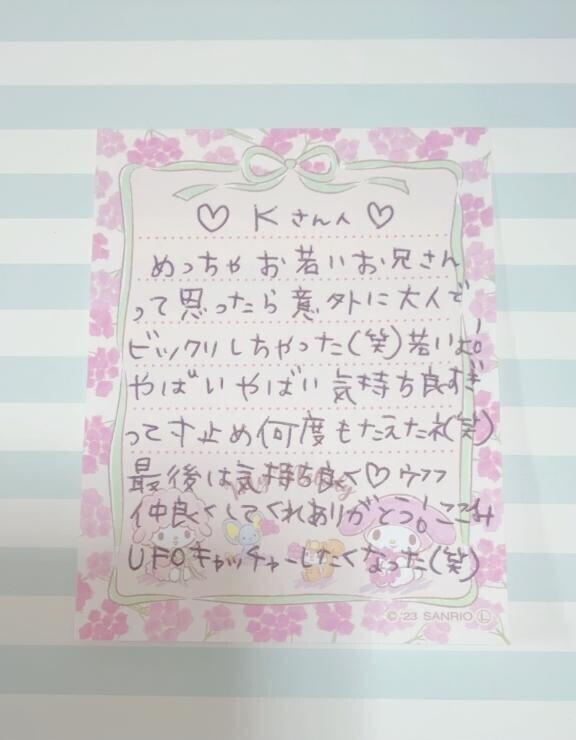 ♡ Kさんへ ♡
めっちゃお若いお兄さん
って思ったら意外に大人で
ビックリしちゃった(笑)若いよ。
やばいやばい気持ち良すぎ
って寸止め何度もたえたネ(笑)
最後は気持ち良く♡ウフフ
仲良くしてくれありがとう!
UFOキャッチャーしたくなった(笑)
©'23 SANRIO Ⓛ